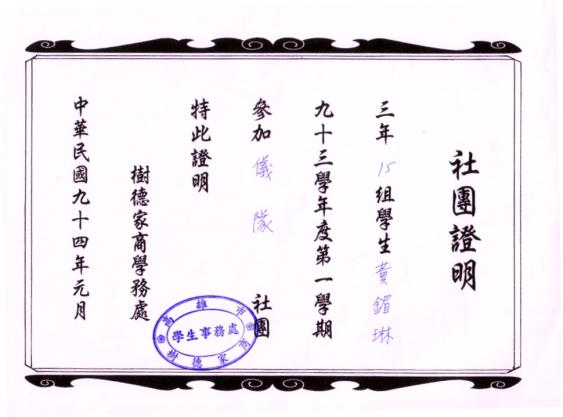 社團證明
三年 15 組學生 黃鎇琳
九十三學年度第一學期
參加 儀隊 社團
特此證明
樹德家商學務處
中華民國九十四年元月
高雄市
學生事務處
樹德家商